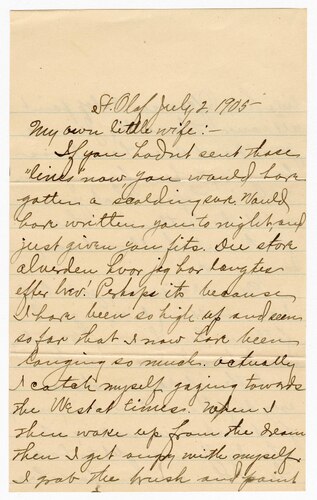 St. Olaf July 2, 1905
My own little wife:-
If you hadn't sent those
"lines" now you would have
gotten a scolding sure. Would
have written you to night and
just given you fits. Du store
alverden hvor jeg har længtes
efter brev! Perhaps its because
I have been so high up and seen
so far that I now have been
longing so much. Actually
I catch myself gazing towards
the West at times. When I
then wake up from the dream
then I get angry with myself
I grab the brush and paint